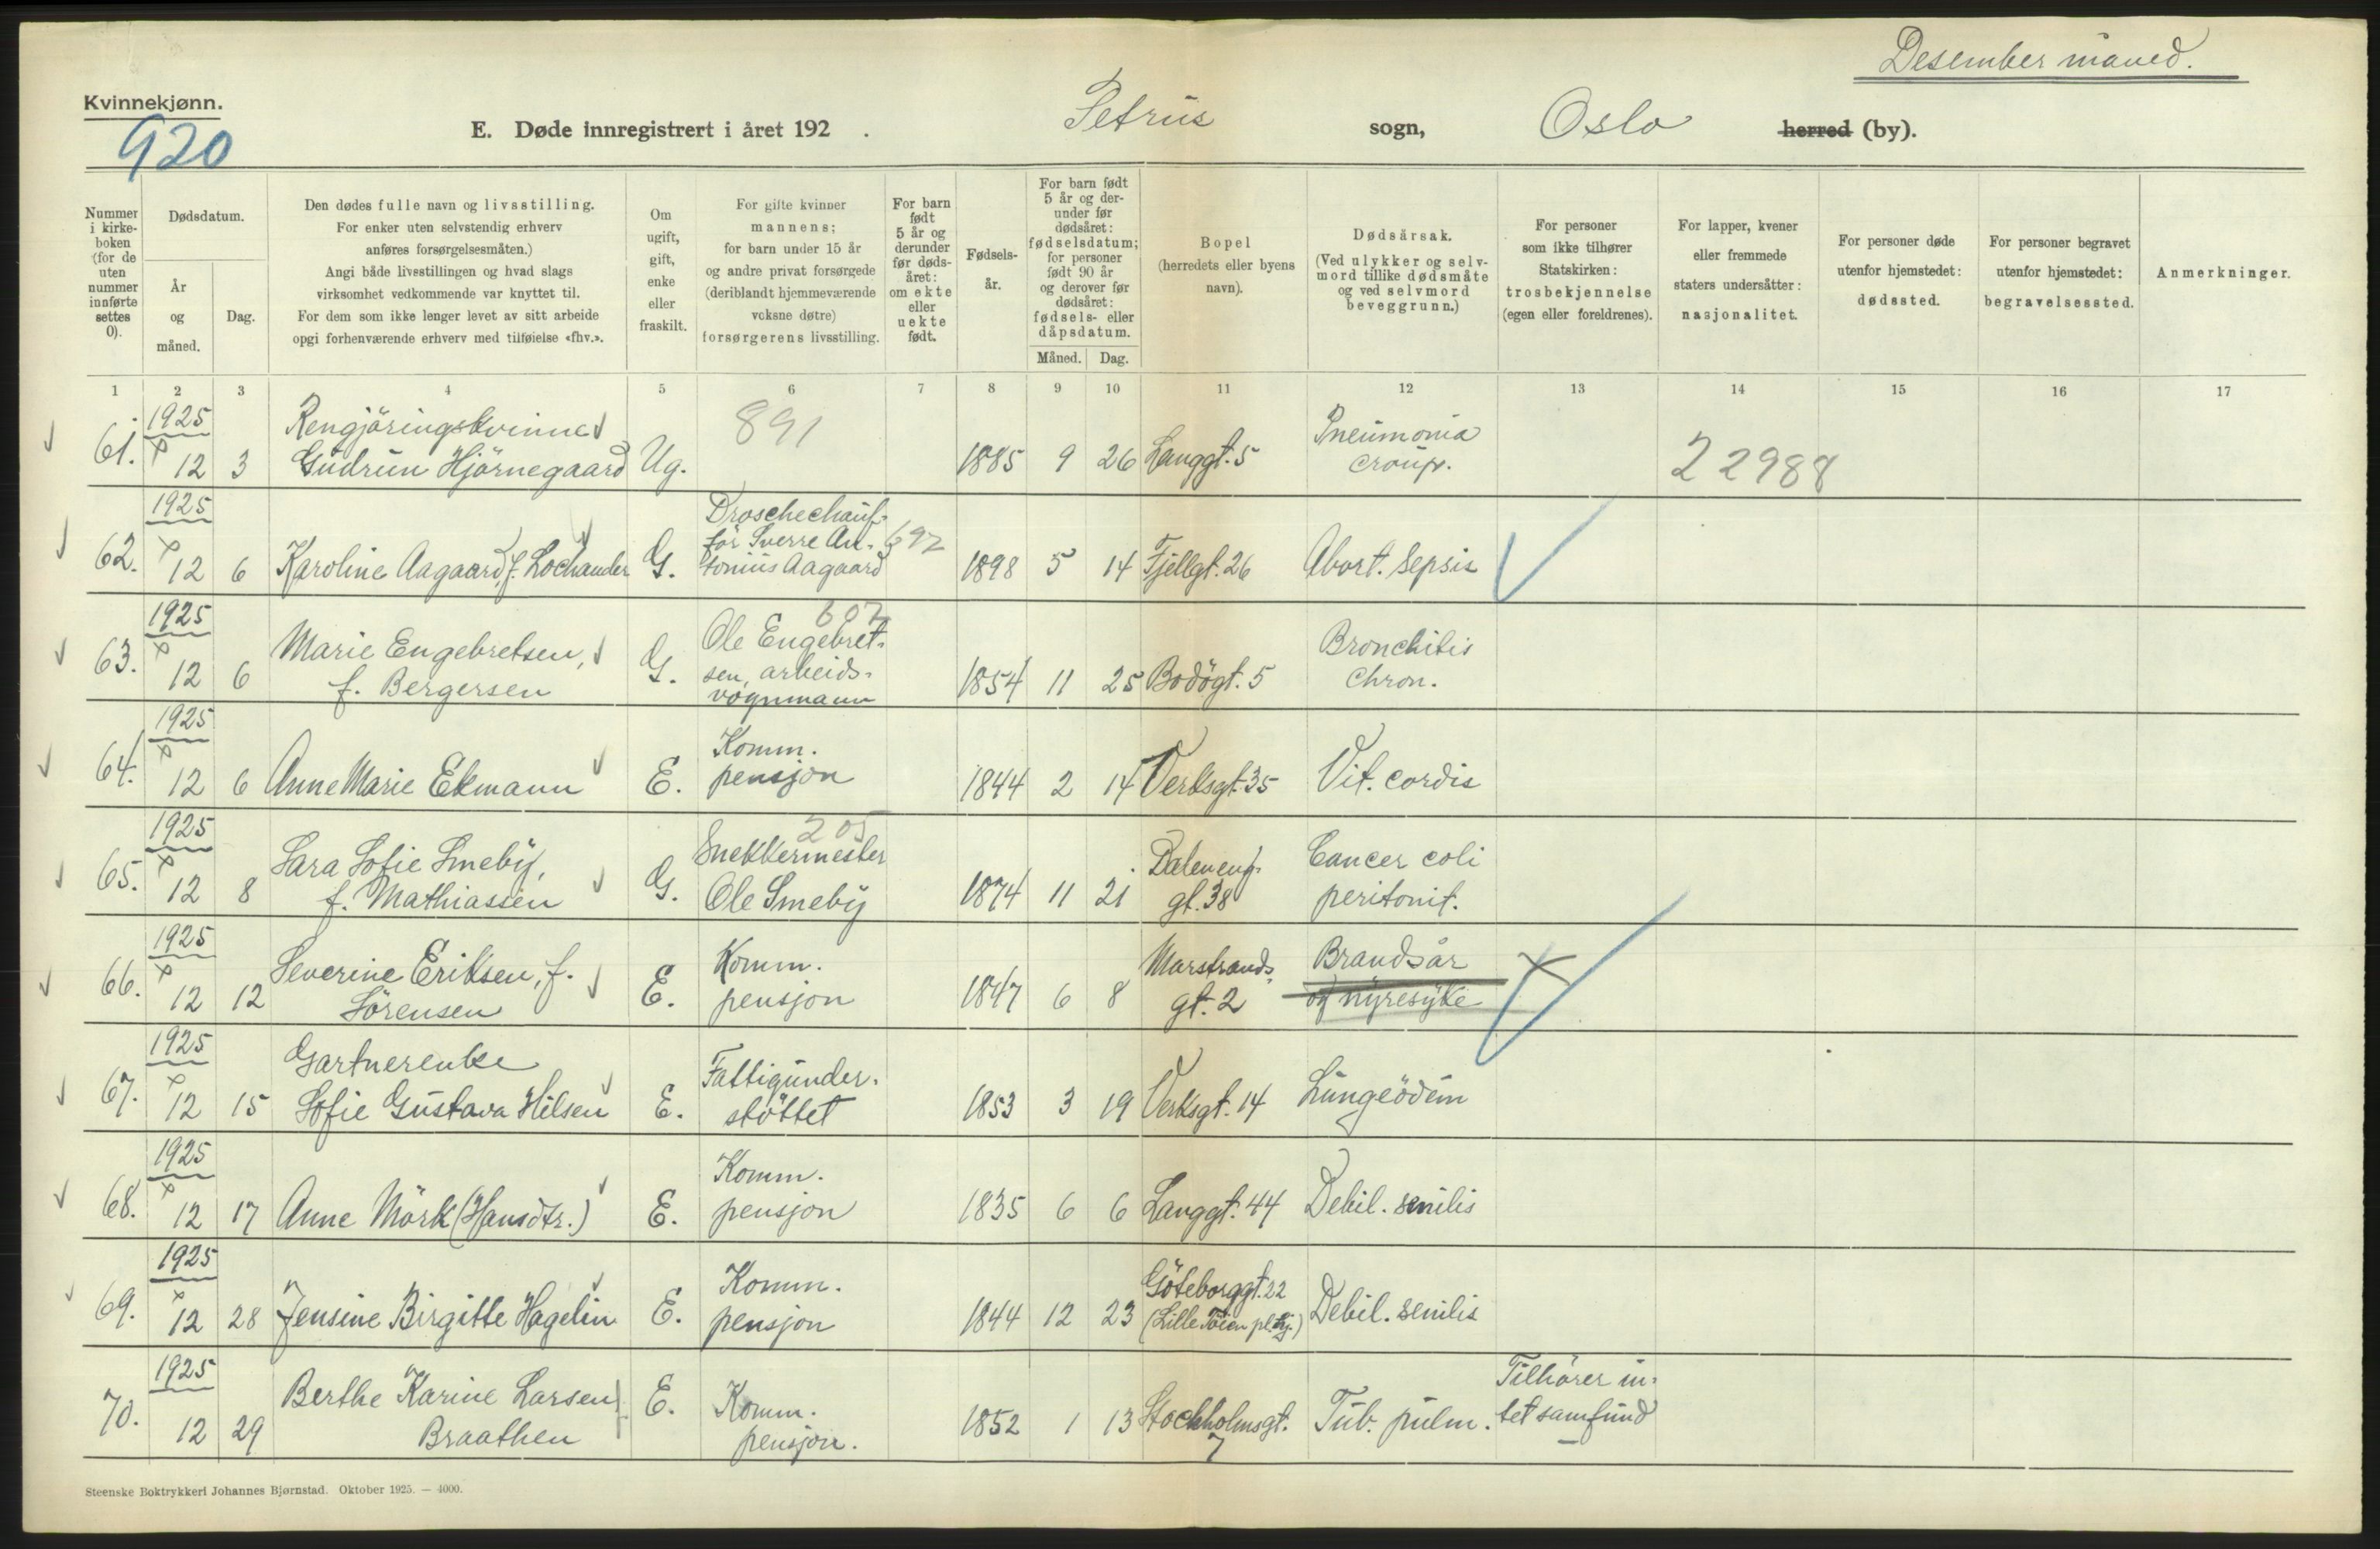 Desember måned.
Kvinnekjønn.
920
E. Døde innregistrert i året 192 .
Petrus sogn, Oslo herred (by).
Nummer i kirkeboken (for de uten nummer innførte settes 0).
Dødsdatum.
År og måned.
Dag.
Den dødes fulle navn og livsstilling.
For enker uten selvstendig erhverv
anføres forsørgelsesmåten.)
Angi både livsstillingen og hvad slags
virksomhet vedkommende var knyttet til.
For dem som ikke lenger levet av sitt arbeide
opgi forhenværende erhverv med tilføielse «fhv.».
Om ugift, gift, enke eller fraskilt.
For gifte kvinner
mannens;
for barn under 15 år
og andre privat forsørgede
(deriblandt hjemmeværende
voksne døtre)
forsørgerens livsstilling.
For barn født 5 år og derunder før dødsåret: om ekte eller uekte født.
Fødselsår.
For barn født 5 år og derunder før dødsåret: fødselsdatum; for personer født 90 år og derover før dødsåret: fødsels- eller dåpsdatum.
Måned. Dag.
Bopel
(herredets eller byens
navn).
Dødsårsak.
(Ved ulykker og selvmord tillike dødsmåte og ved selvmord beveggrunn.)
For personer
som ikke tilhører
Statskirken:
trosbekjennelse
(egen eller foreldrenes).
For lapper, kvener
eller fremmede
staters undersåtter:
nasjonalitet.
For personer døde
utenfor hjemstedet:
dødssted.
For personer begravet
utenfor hjemstedet:
begravelsessted.
Anmerkninger.
1 2 3 4 5 6 7 8 9 10 11 12 13 14 15 16 17
1925 Rengjöringskvinne 891 Pneumonia
61. 12 3 Gudrun Hjörnegaard Ug. 1885 9 26 Langgt. 5 croup. 22988
1925 Droschechauf-
för Sverre An- 692
62. 12 6 Karoline Aagaard, f. Lochander G. tonius Aagaard 1898 5 14 Fjellgt. 26 Abort. Sepsis
1925 607
Marie Engebretsen, Ole Engebret- Bronchitis
63. 12 6 f. Bergersen G. sen, arbeids- 1854 11 25 Bodögt. 5 Chron.
vognmann
1925 Komm.
64. 12 6 Anne Marie Ekmann E. pensjon 1844 2 14 Verksgt. 35 Vit. cordis
1925 205
Sara Sofie Smeby, Snekkermester Dæleneng- Cancer coli
65. 12 8 f. Mathiassen G. Ole Smeby 1874 11 21 gt. 38 peritonit.
1925 Severine Eriksen, f. Komm. Marstrands- Brandsår
66. 12 12 Sörensen E. pensjon 1847 6 8 gt. 2 og nyresyke
1925 Gartnerenke Fattigunder-
67. 12 15 Sofie Gustava Hilsen E. stöttet 1853 3 19 Verksgt. 14 Lungeödem
1925 Komm.
68. 12 17 Anne Mörk (Hansdtr.) E. pensjon 1835 6 6 Langgt. 44 Debil. senilis
1925 Komm. Göteborggt. 22
69. 12 28 Jensine Birgitte Hagelin E. pensjon 1844 12 23 (Lille Töien pl.hj.) Debil. senilis
1925 Berthe Karine Larsen E. Komm. Tilhörer in-
70. 12 29 Braathen pensjon. 1852 1 13 Stockholmsgt. 7 Tub. pulm. tet samfund
Steenske Boktrykkeri Johannes Bjørnstad. Oktober 1925. — 4000.